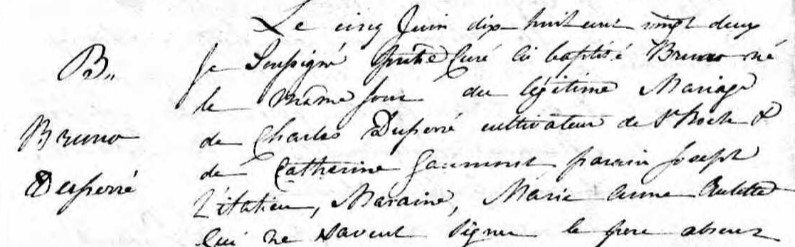 B.
Bruno
Duperré
Le cinq Juin dix huit cent vingt deux
Je Soussigné prêtre Curé ai baptisé Bruno né
le même jour du légitime Mariage
de Charles Duperré cultivateur de St Roch &
de Catherine Gaumont parain Joseph
Maraine, Marie anne
qui ne savent signer le pere absent